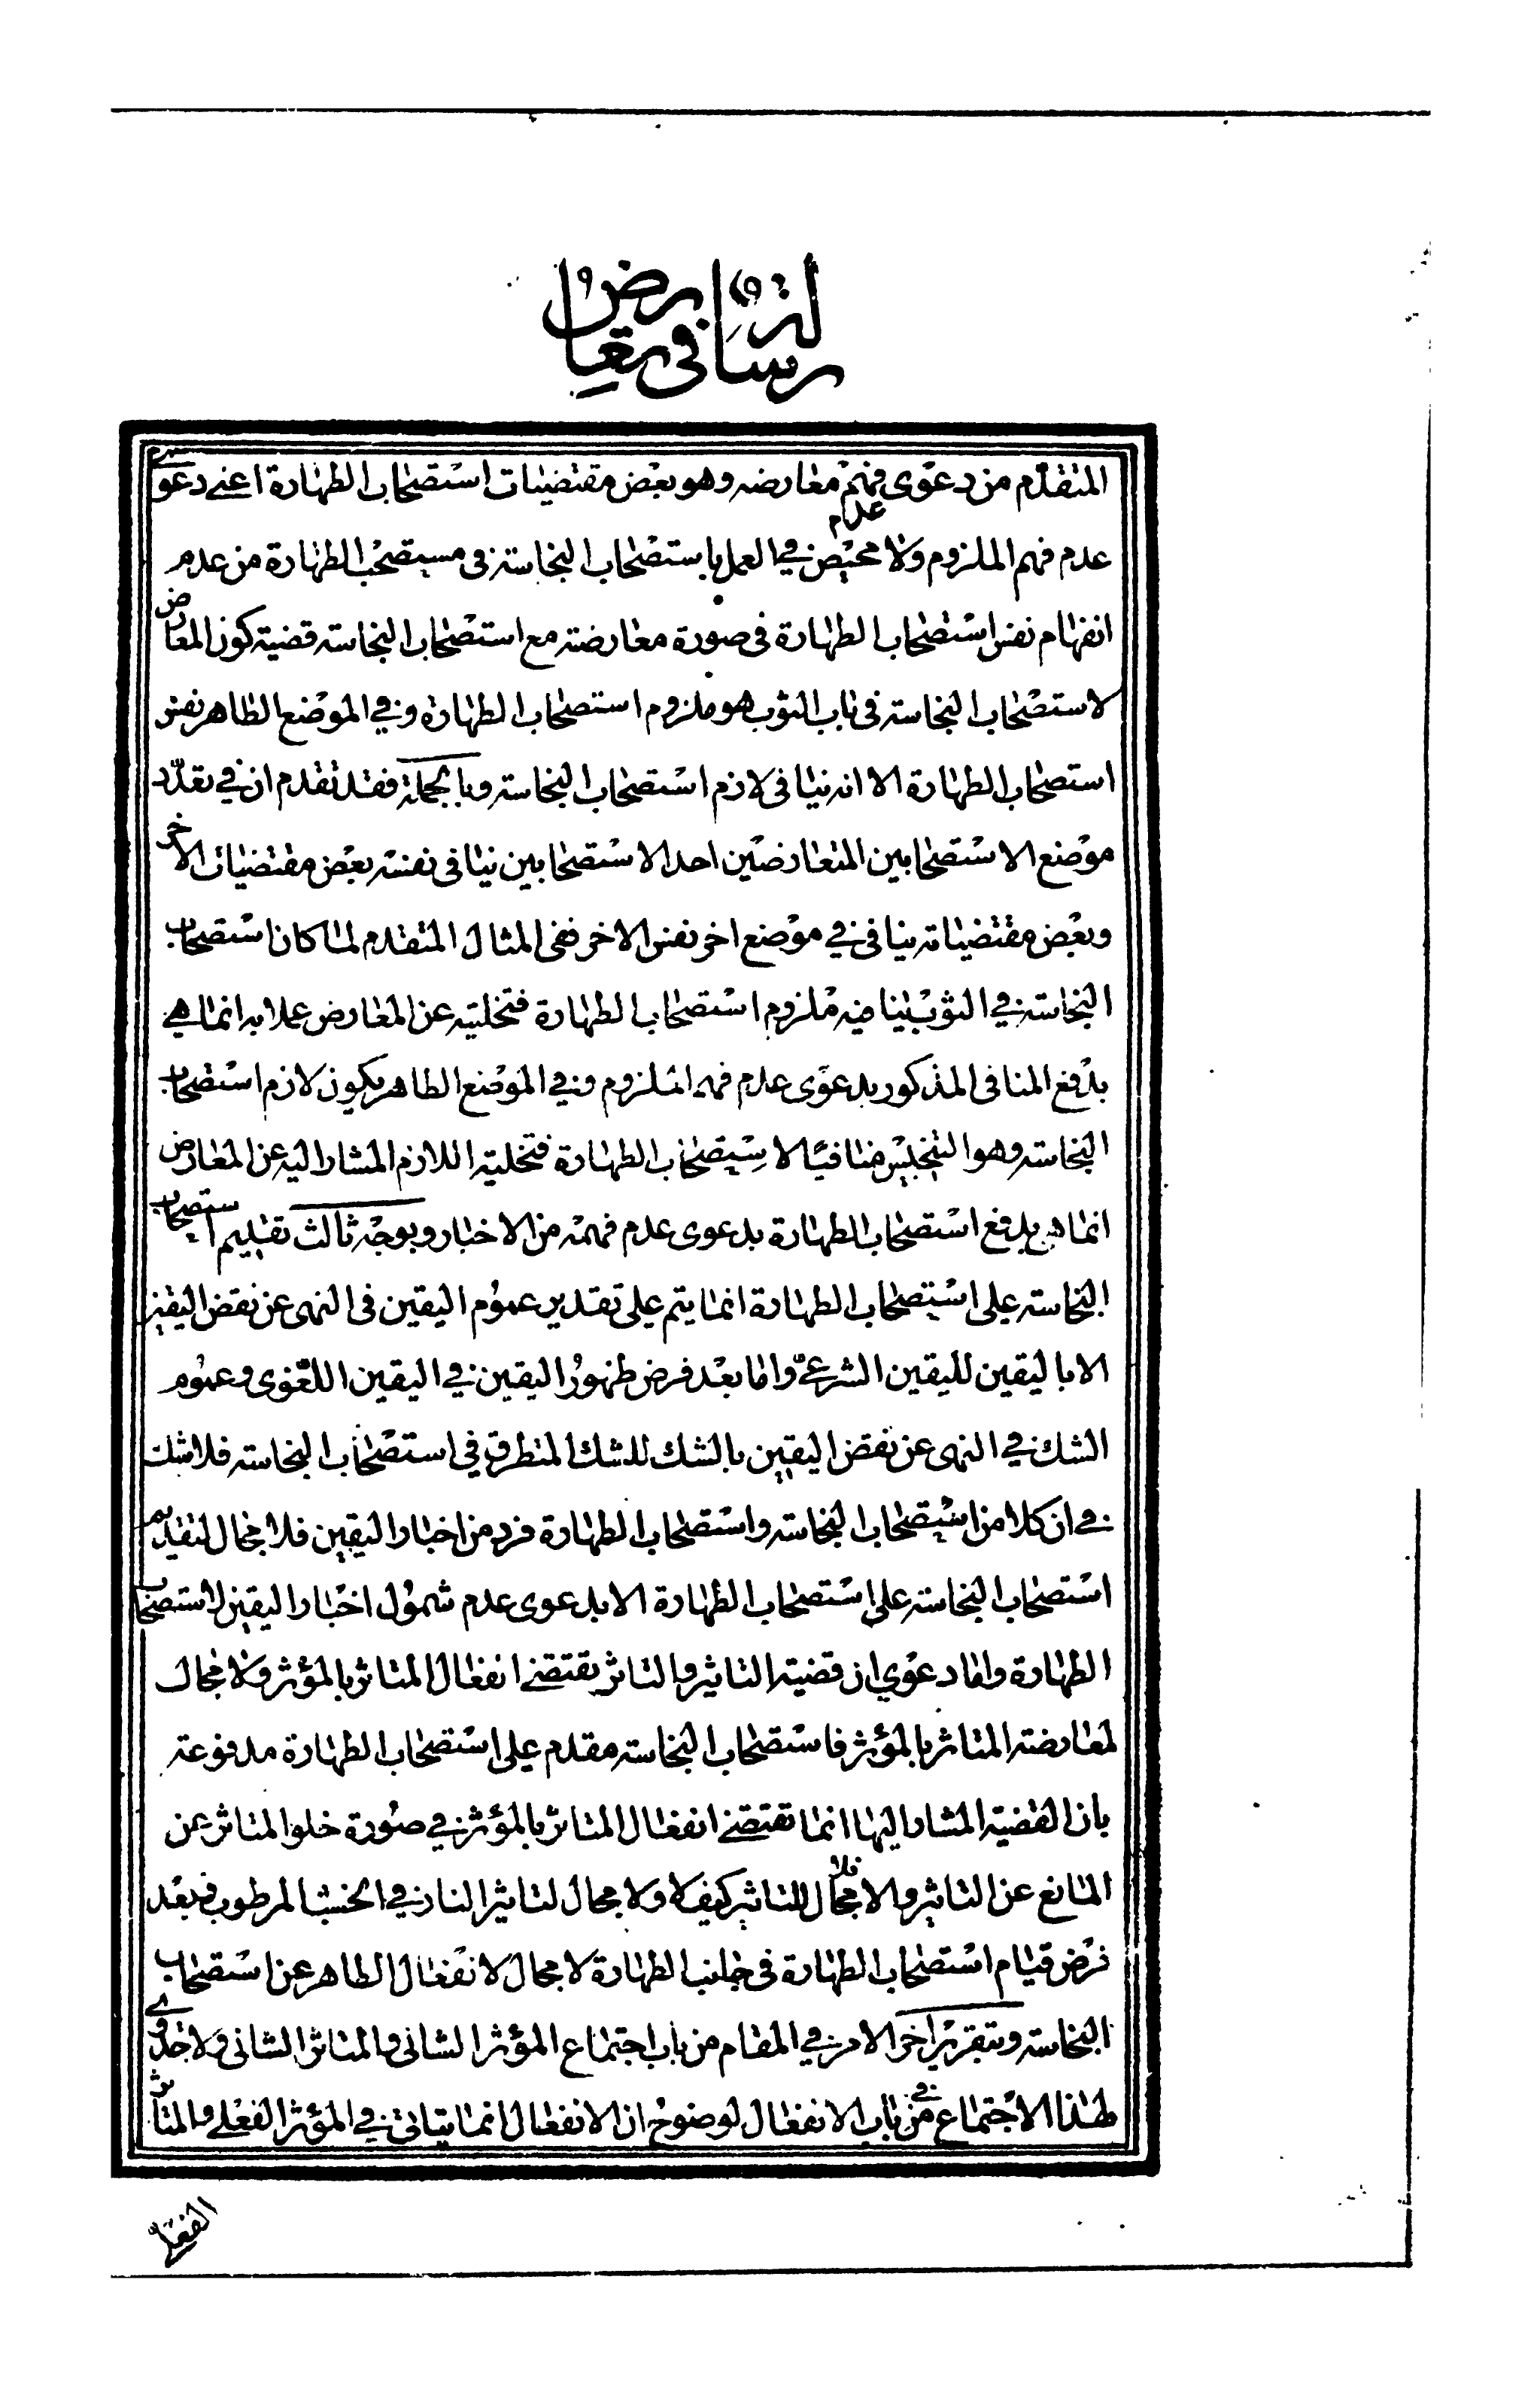 رسالة في تعارض
المتقدم من دعوى عدم فهم معارضه وهو بعض مقتضيات استصحاب الطهارة اعنى دعوى
عدم فهم الملزوم ولا محيص في العمل باستصحاب النجاسة في مستصحب الطهارة من عدم
انفهام نفس استصحاب الطهارة في صورة معارضته مع استصحاب النجاسة قضية كون المعارض
لاستصحاب النجاسة في باب الثوب هو ملزوم استصحاب الطهارة وفي الموضع الطاهر نفس
استصحاب الطهارة الا انه ينافى لازم استصحاب النجاسة وبالجملة فقد تقدم ان في تعدد
موضع الاستصحابين المتعارضين احد الاستصحابين ينافى نفسه بعض مقتضيات الاخر
وبعض مقتضياته ينافى في موضع اخر نفس الاخر ففى المثال المتقدم لما كان استصحاب
النجاسة في الثوب ينافيه ملزوم استصحاب الطهارة فتخليته عن المعارض عملا به انما هي
بدفع المنافى المذكور بدعوى عدم فهم الملزوم وفي الموضع الطاهر يكون لازم استصحاب
النجاسة وهو التنجيس منافيًا لاستصحاب الطهارة فتخلية اللازم المشار اليه عن المعارض
انما هي بدفع استصحاب الطهارة بدعوى عدم فهمه من الاخبار وبوجه ثالث تقديم استصحاب
النجاسة على استصحاب الطهارة انما يتم على تقدير عموم اليقين في النهى عن نقض اليقين
الا باليقين لليقين الشرعيّ واما بعد فرض ظهور اليقين في اليقين اللغوى وعموم
الشك في النهى عن نقض اليقين بالشك للشك المتطرق في استصحاب النجاسة فلا شك
في ان كلا من استصحاب النجاسة واستصحاب الطهارة فرد من اخبار اليقين فلا مجال لتقديم
استصحاب النجاسة على استصحاب الطهارة الا بدعوى عدم شمول اخبار اليقين لاستصحاب
الطهارة واما دعوى ان قضية التاثير والتاثر يقتضى انفعال المتاثر بالمؤثر ولا مجال
لمعارضة المتاثر بالمؤثر فاستصحاب النجاسة مقدم على استصحاب الطهارة مدفوعة
بان القضية المشار اليها انما تقتضى انفعال المتاثر بالمؤثر في صورة خلو المتاثر عن
المانع عن التاثر والا فلا مجال للتاثير كيف لا ولا مجال لتاثير النار في الخشب المرطوب فبعد
فرض قيام استصحاب الطهارة في جانب الطهارة لا مجال لانفعال الطاهر عن استصحاب
النجاسة وبتقرير اخر الامر في المقام من باب اجتماع المؤثر الشانى والمتاثر الشانى ولا جدوى
لهذا الاجتماع في باب الانفعال لوضوح ان الانفعال انما يتاتى في المؤثر الفعلي والمتاثر
الفعلي